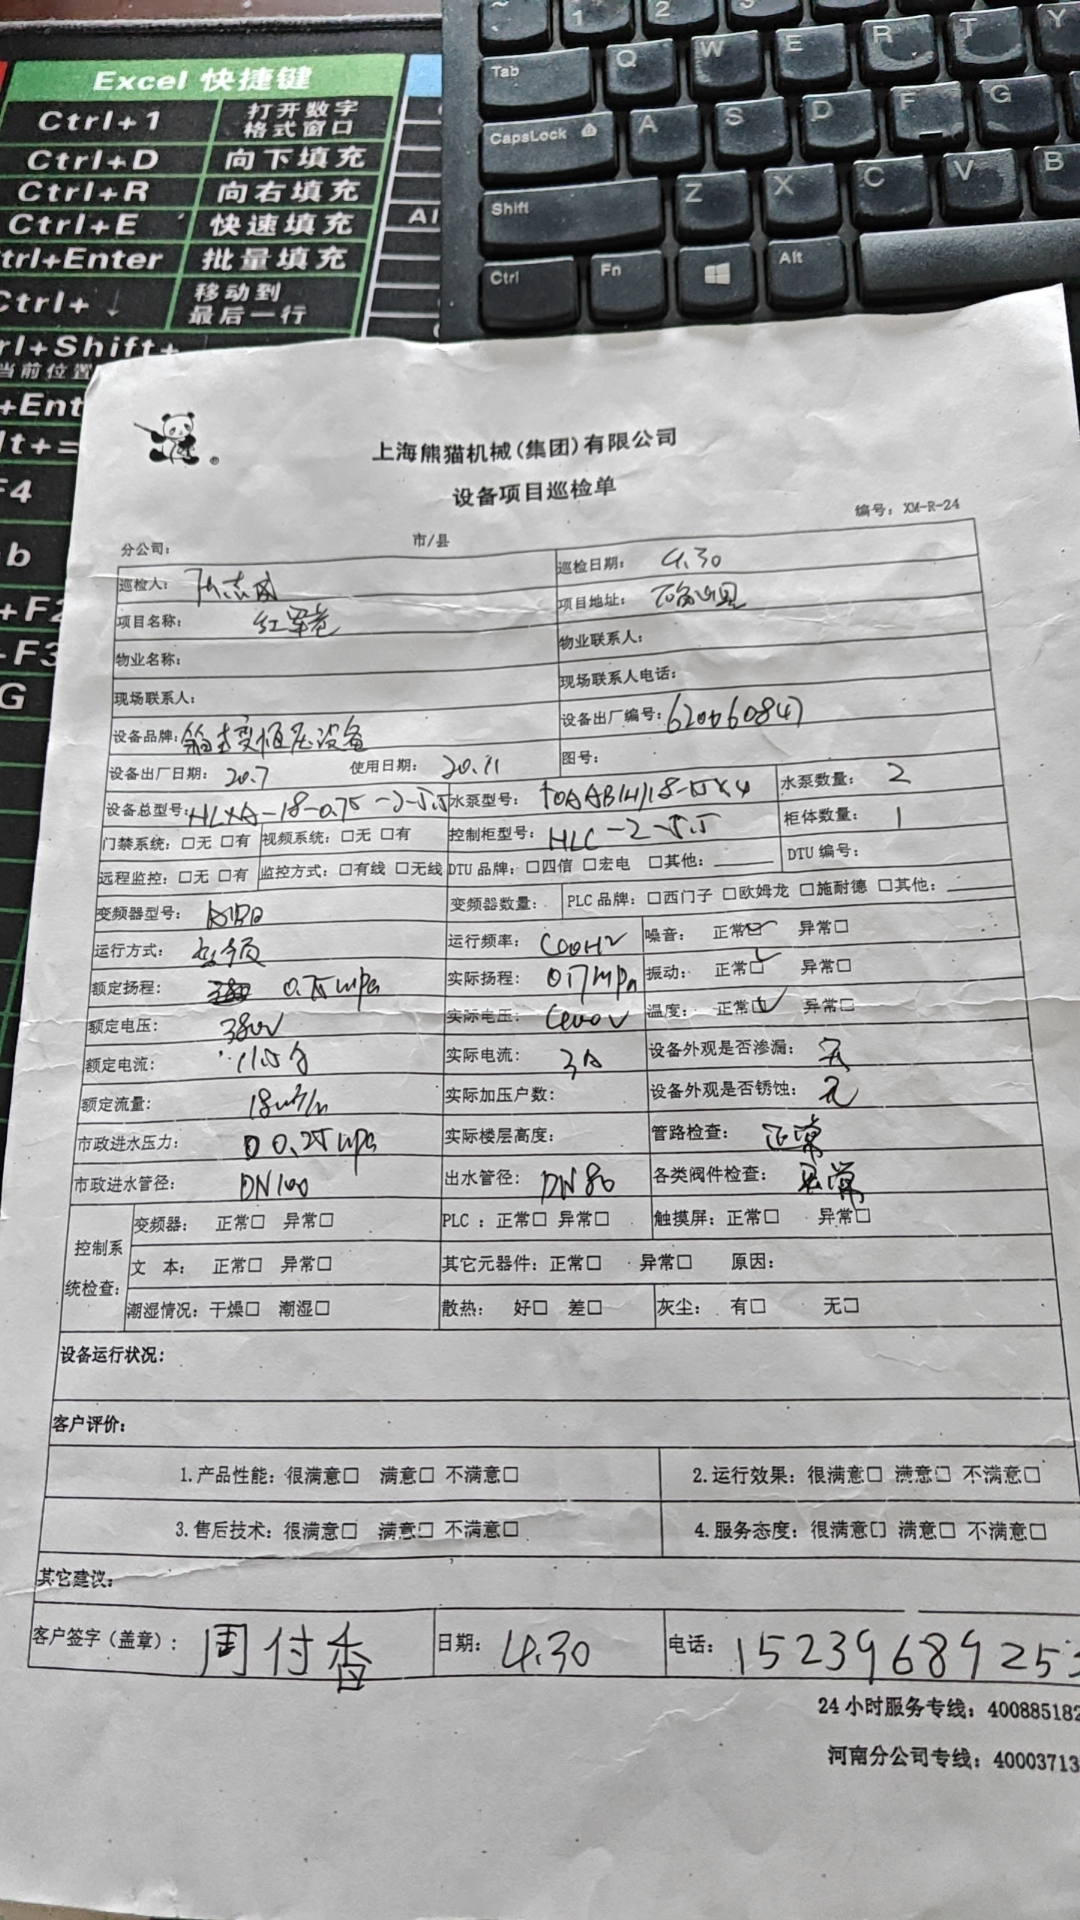 ~ 1 2 3
Tab Q W E R T Y
CapsLock A S D F G
Shift Z X C V B
Ctrl Fn Alt
Excel 快捷键
Ctrl+1 打开数字格式窗口
Ctrl+D 向下填充
Ctrl+R 向右填充
Ctrl+E 快速填充
trl+Enter 批量填充
Ctrl+↓ 移动到最后一行
rl+Shift+
当前位置
+Ent
lt+=
F4
b
+F2
-F3
G
上海熊猫机械(集团)有限公司
设备项目巡检单
编号: XM-R-24
分公司: 市/县
巡检人: 巡检日期: 4.30
项目名称: 项目地址: 确山县
物业名称: 物业联系人:
现场联系人: 现场联系人电话:
设备品牌: 设备出厂编号:
设备出厂日期: 20.7 使用日期: 20.11 图号:
设备总型号: HLXA-18-0.75-2-5.5 水泵型号: 水泵数量: 2
门禁系统: □无 □有 视频系统: □无 □有 控制柜型号: HLC-2-5.5 柜体数量: 1
远程监控: □无 □有 监控方式: □有线 □无线 DTU 品牌: □四信 □宏电 □其他: DTU 编号:
变频器型号: 变频器数量: PLC 品牌: □西门子 □欧姆龙 □施耐德 □其他:
运行方式: 运行频率: 噪音: 正常☑ 异常□
额定扬程: 0.75mpa 实际扬程: 振动: 正常☑ 异常□
额定电压: 380V 实际电压: 温度: 正常☑ 异常□
额定电流: 实际电流: 3A 设备外观是否渗漏: 无
额定流量: 18m³/h 实际加压户数: 设备外观是否锈蚀: 无
市政进水压力: 0.25mpa 实际楼层高度: 管路检查: 正常
市政进水管径: DN100 出水管径: DN80 各类阀件检查: 正常
控制系统检查:
变频器: 正常□ 异常□ PLC : 正常□ 异常□ 触摸屏: 正常□ 异常□
文 本: 正常□ 异常□ 其它元器件: 正常□ 异常□ 原因:
潮湿情况: 干燥□ 潮湿□ 散热: 好□ 差□ 灰尘: 有□ 无□
设备运行状况:
客户评价:
1.产品性能: 很满意□ 满意□ 不满意□ 2.运行效果: 很满意□ 满意□ 不满意□
3.售后技术: 很满意□ 满意□ 不满意□ 4.服务态度: 很满意□ 满意□ 不满意□
其它建议:
客户签字(盖章): 周付香 日期: 4.30 电话: 1523968925
24 小时服务专线: 400885182
河南分公司专线: 40003713